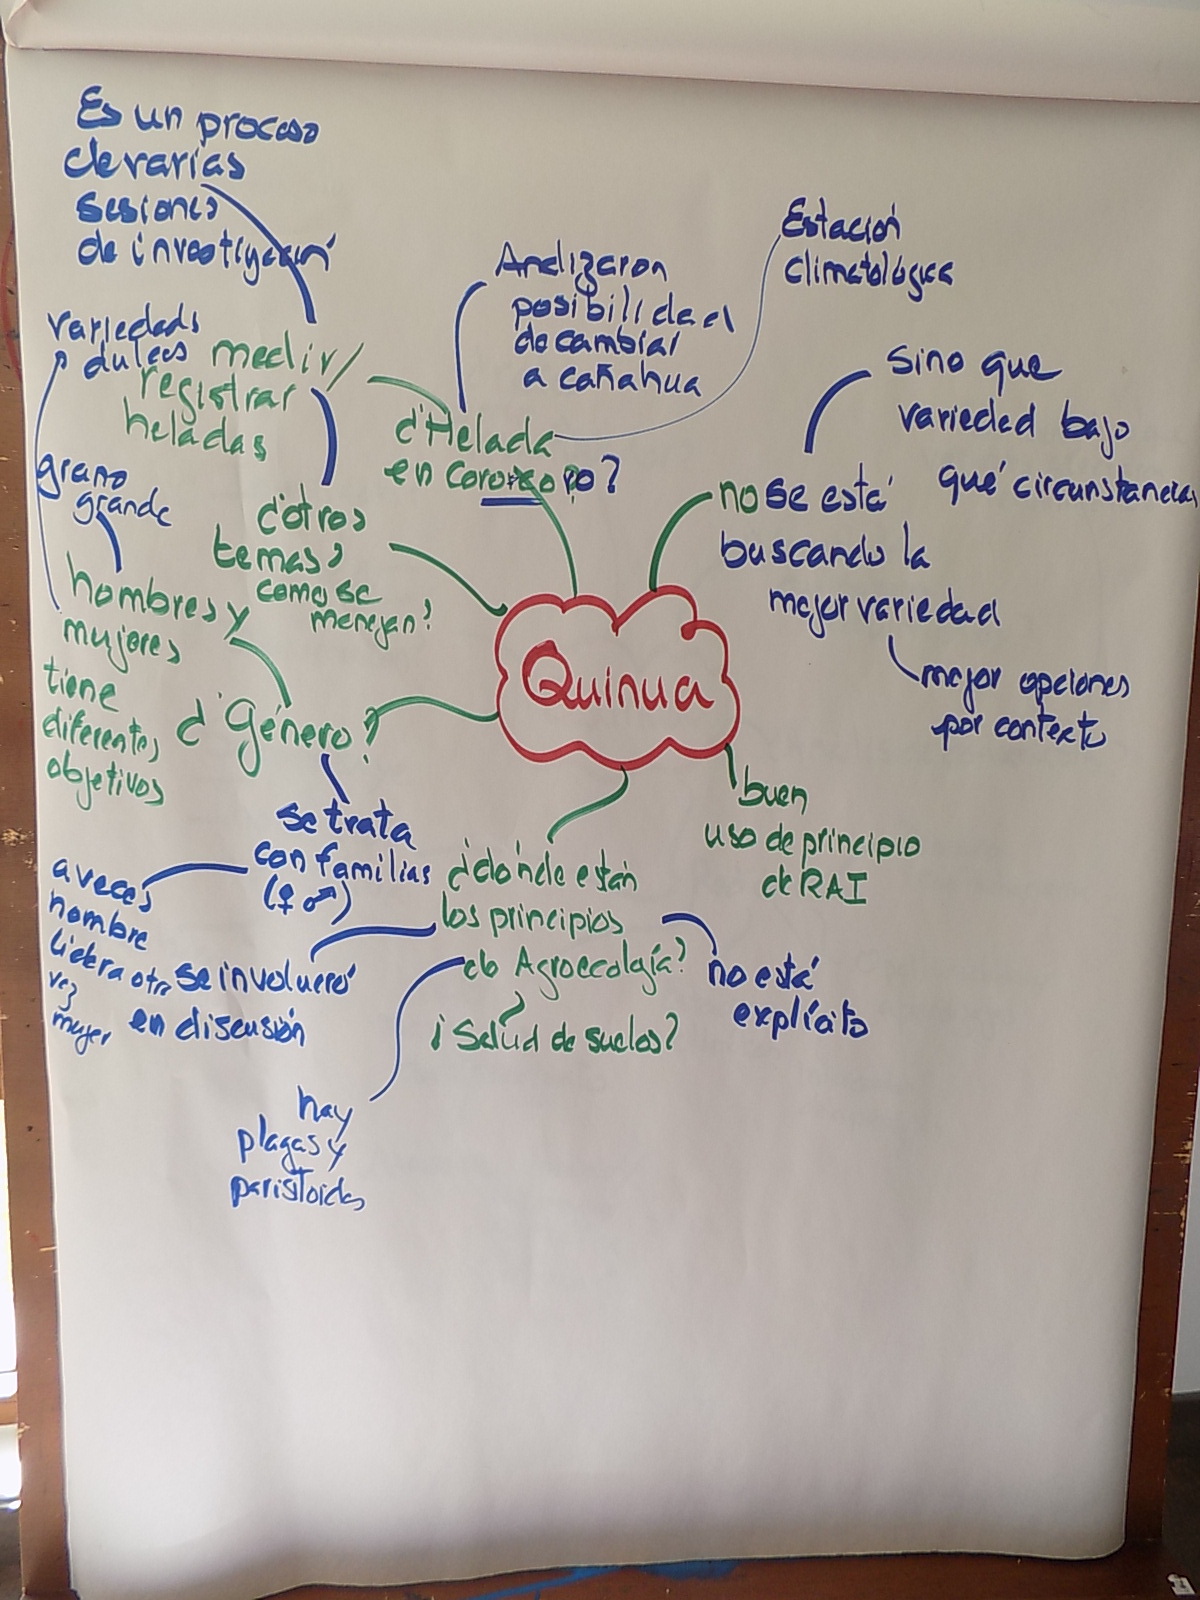 Es un proceso
de varias
sesiones
de investigación
variedads
dulces
medir/
registrar
heladas
Analizaron
posibilidad
de cambiar
a cañahua
Estación
climatológica
¿Helada
en Corocoro?
Sino que
variedad bajo
qué circunstancias
no se está
buscando la
mejor variedad
mejor opciones
por contexto
grano
grande
¿otros
temas,
como se
manejan?
hombres y
mujeres
tiene
diferentes
objetivos
¿Género?
Quinua
buen
uso de principio
de RAI
se trata
con familias
(♀ ♂)
a veces
hombre
lidera otra
vez
mujer
¿dónde están
los principios
de Agroecología?
¿Salud de suelos?
no está
explícito
se involucró
en discusión
hay
plagas y
paristoides